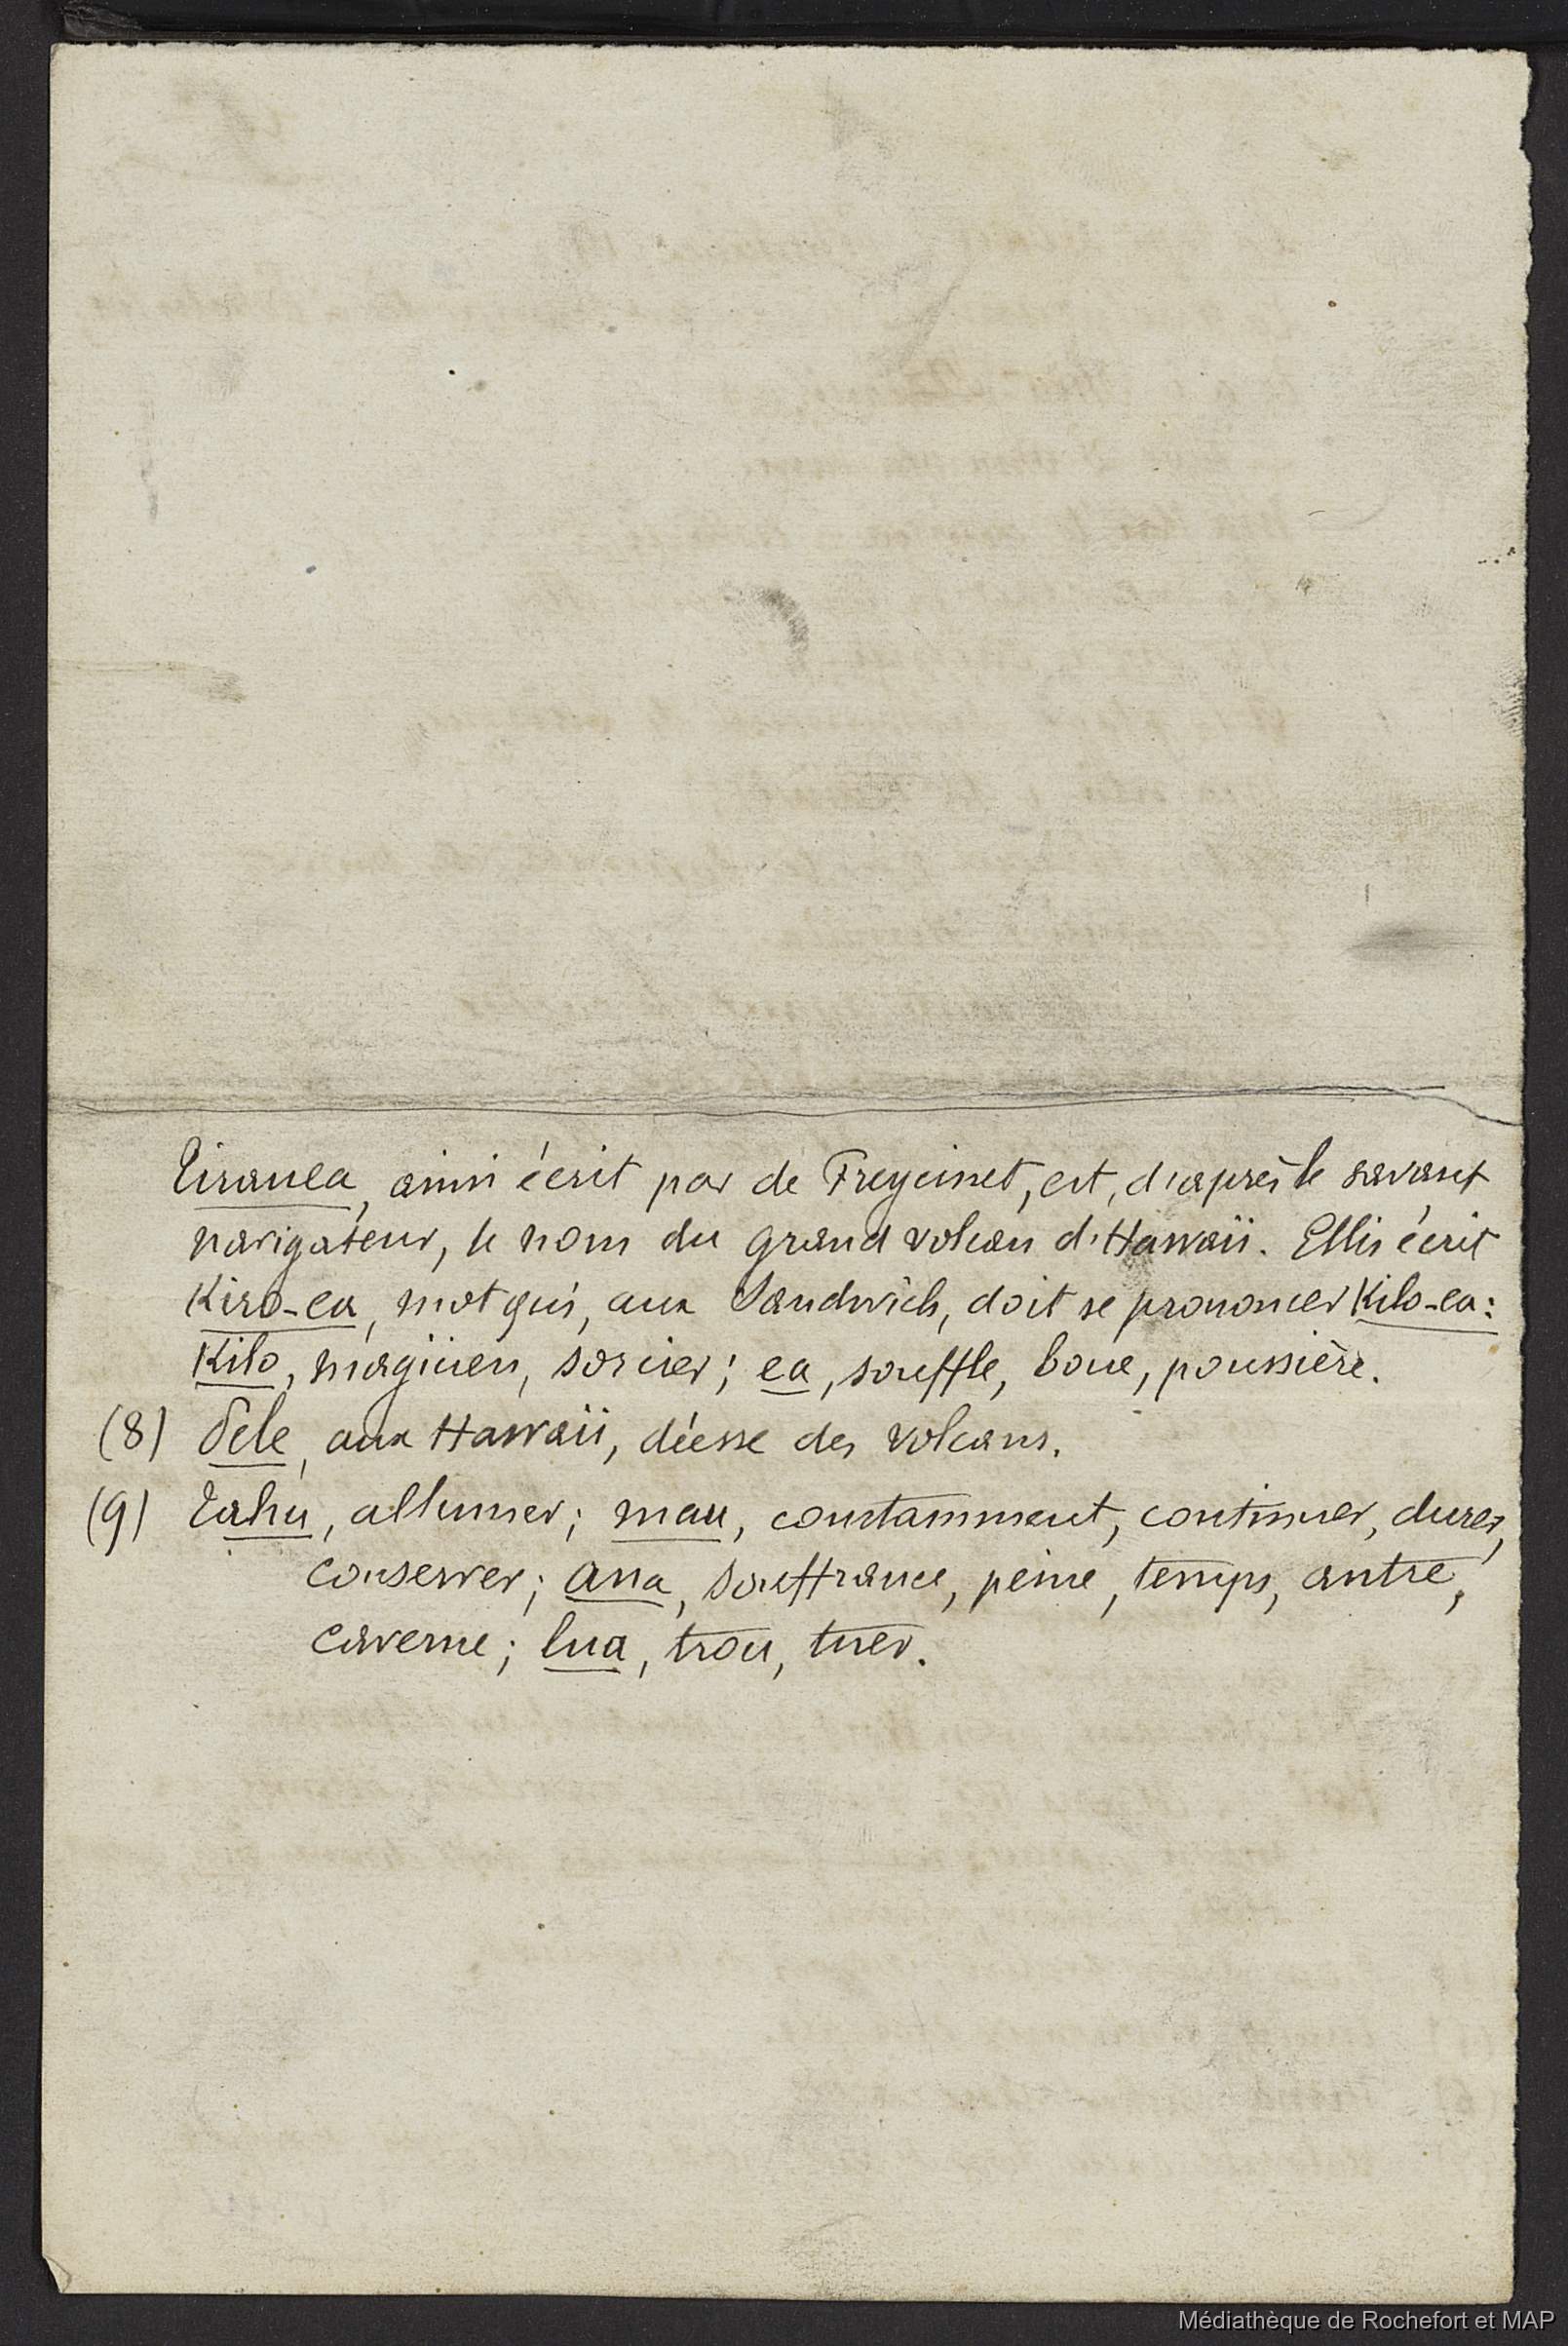 Tirauea, ainsi écrit par de Freycinet, est, d'après le savant
navigateur, le nom du grand volcan d'Hawaïi. Ellis écrit
Kiro-ea, mot qui, aux Sandwich, doit se prononcer Kilo-ea:
Kilo, magicien, sorcier; ea, souffle, boue, poussière.
(8) Pele, aux Hawaïi, déesse des volcans.
(9) Tahu, allumer; mau, constamment, continuer, durer,
conserver; ana, souffrance, peine, temps, antre,
caverne; lua, trou, tuer.
Médiathèque de Rochefort et MAP